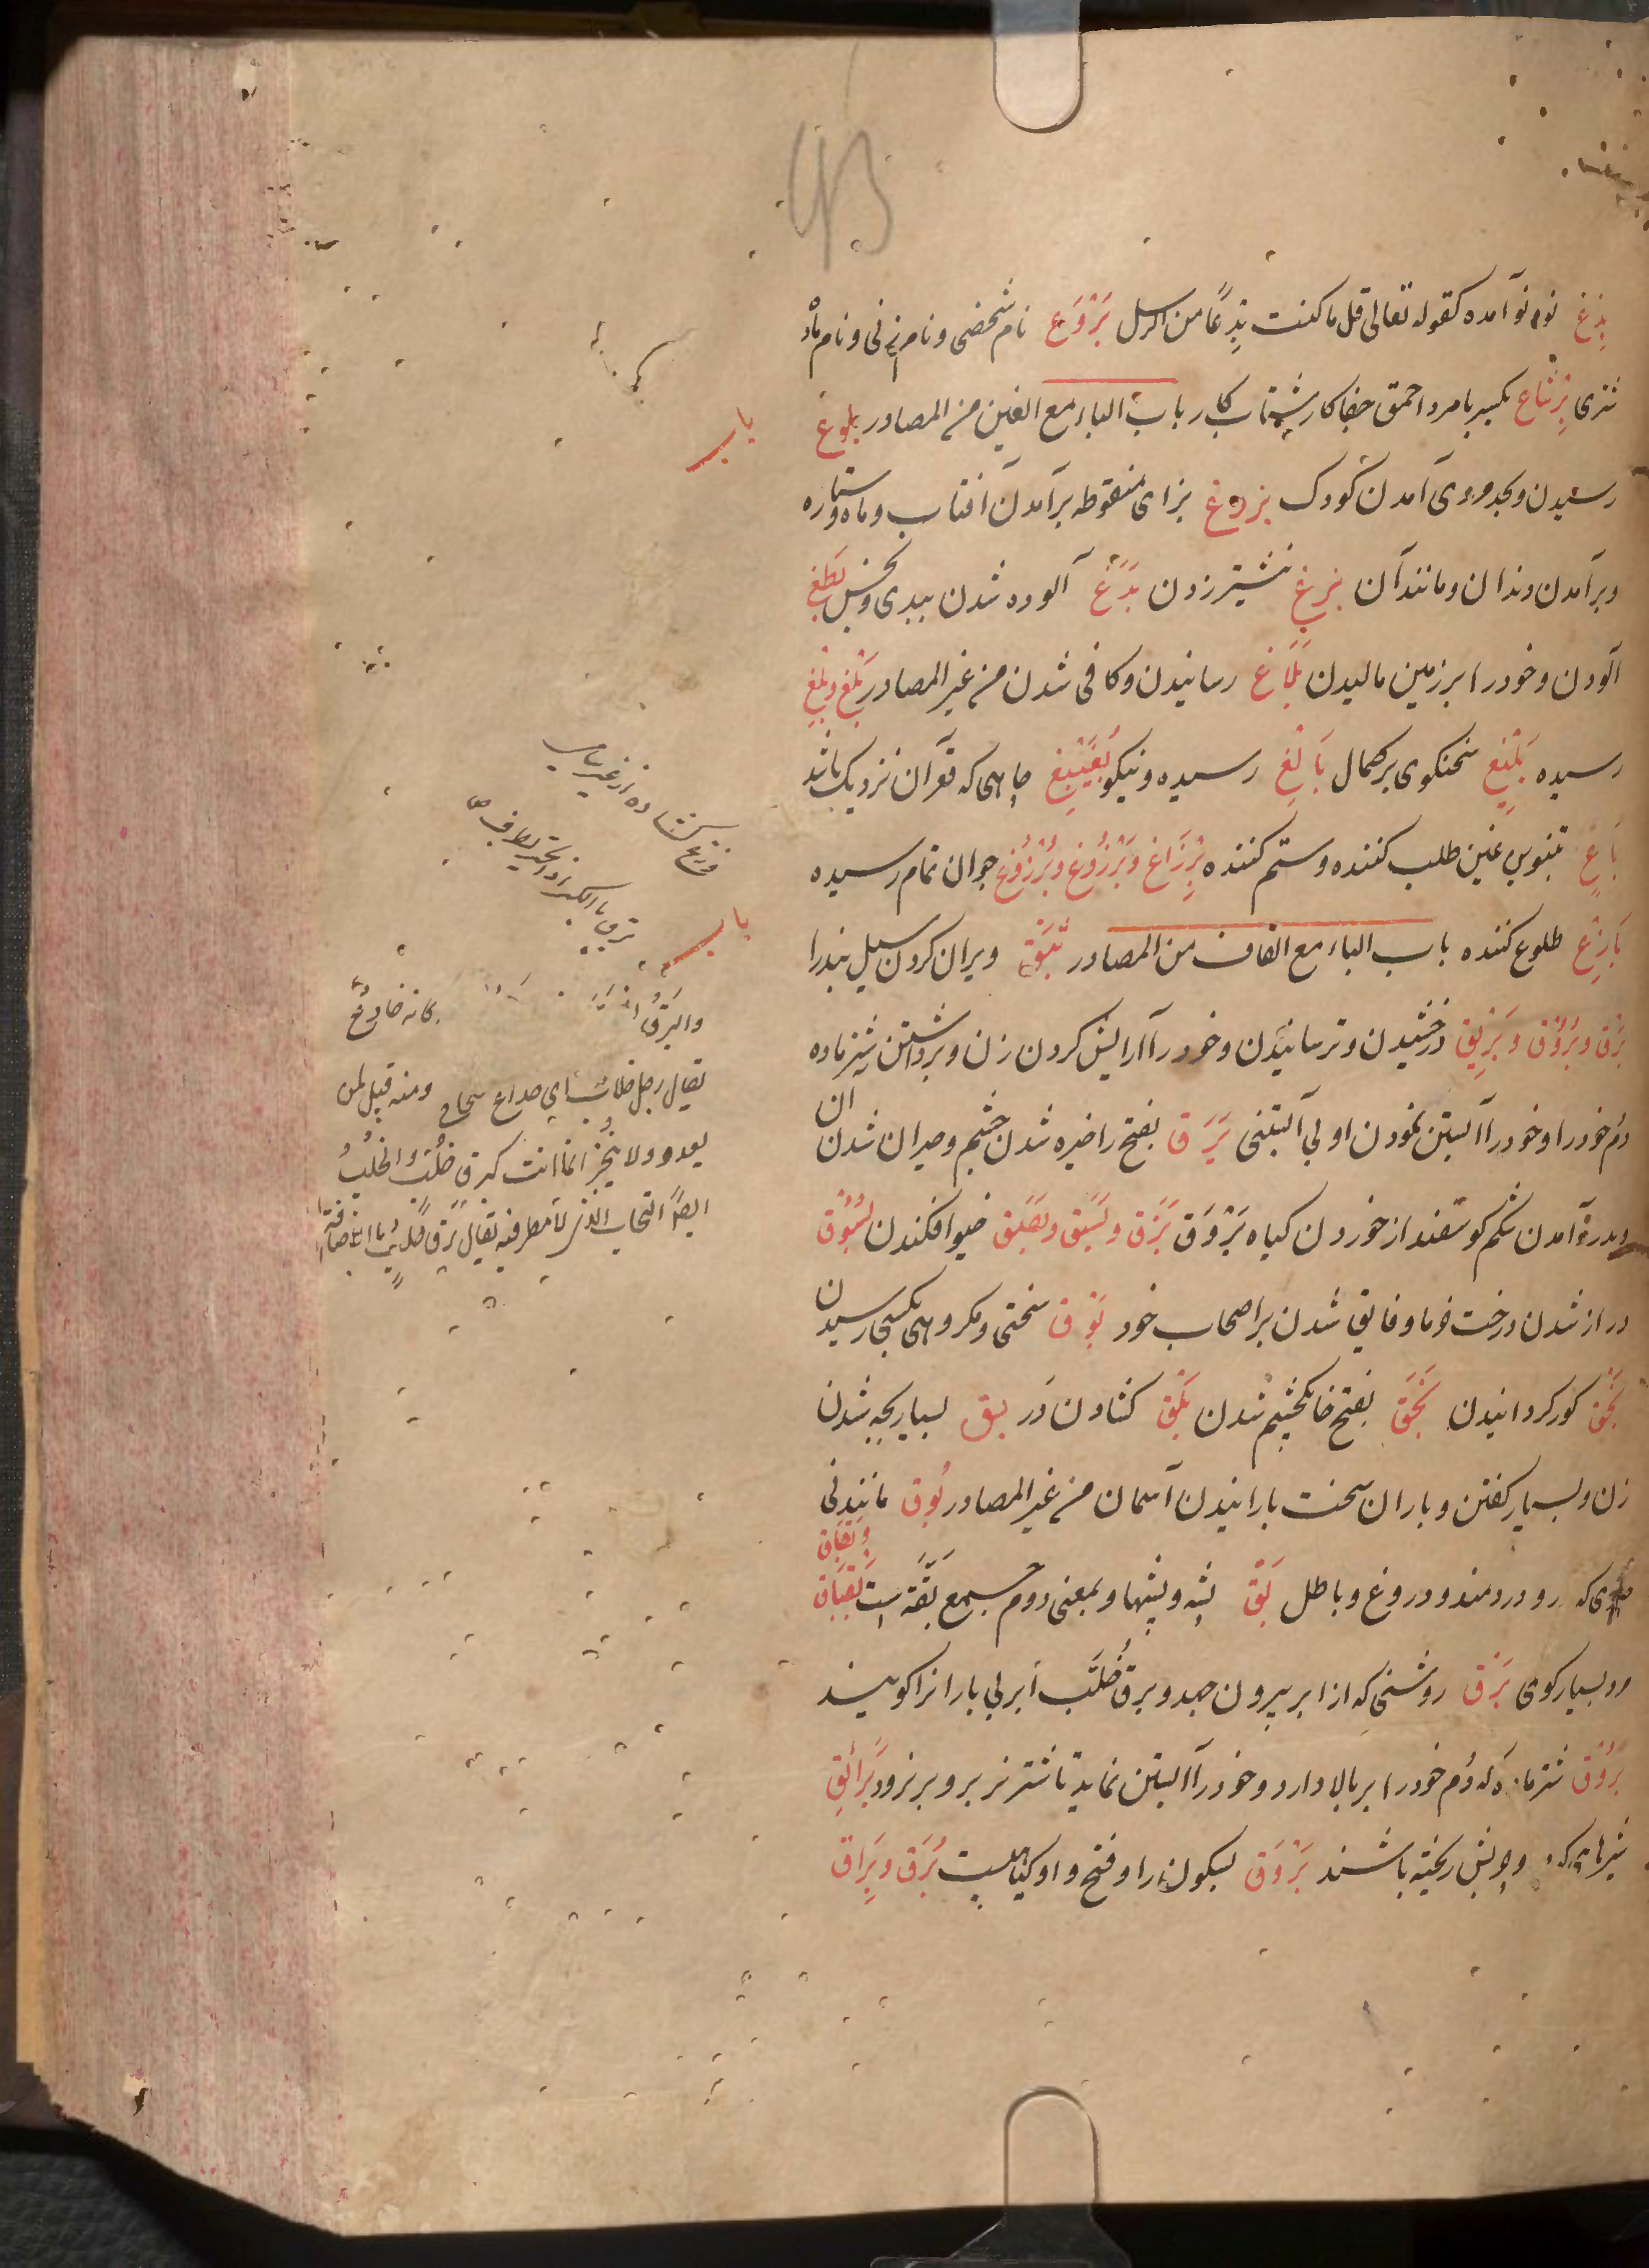 بِدْع نو و نو آمده کقوله تعالی قل ما کنت بِدْعًا من الرسل بَرْوَع نام شخصی و نام زنی و نام ماده
شتری بِرْشاع بکسر با مرد احمق جفا کار شتاب کار باب الباء مع الغین من المصادر بلوغ
رسیدن و بحد مردی آمدن کودک بزوغ بزای منقوطه برآمدن آفتاب و ماه و ستاره
و برآمدن دندان و مانند آن بزغ نشتر زدن بَدَغ آلوده شدن ببدی و نجس بَطَغ
آلودن و خود را بر زمین مالیدن بَلَاغ رسانیدن و کافی شدن من غیر المصادر بَلْغ و بِلْغ
رسیده بَلِیْغ سخنگوی بر کمال بَالِغ رسیده و نیکو بُغَیْبِغ چاهی که قعر آن نزدیک باشد
بَاغٍ بتنوین غین طلب کننده و ستم کننده بِرْزَاغ و بَرْزُوغ و بُرْزُوغ جوان تمام رسیده
بَازِغ طلوع کننده باب الباء مع القاف من المصادر بَثَق ویران کردن سیل بند را
بَرْق و بُرُوْق و بَرِیْق درخشیدن و ترسانیدن و خود را آرایش کردن زن و برداشتن شتر ماده
دم خود را و خود را آبستن نمودن او بی آبستنی بَرَق بفتح را خیره شدن چشم و حیران شدن
و بدرد آمدن شکم گوسفند از خوردن گیاه بَرْوَق بَزْق و بَسْق و بَصْق خیو افکندن بُسُوْق
دراز شدن درخت خرما و فایق شدن بر اصحاب خود بَوْق سختی و مکروهی بکسی رسیدن
بَخْق کور گردانیدن بَخَق بفتح خا یکچشم شدن بَلْق گشادن در بق بسیار بچه شدن
زن و بسیار گفتن و باران سخت بارانیدن آسمان من غیر المصادر بُوق مانند نی
که رو در دمند و دروغ و باطل بَقّ پشه و پشها و بمعنی دوم جمع بَقّه است بَقْبَاق
و بَقَاق
مرد بسیار گوی بَرْق روشنی که از ابر بیرون جهد و برق خُلَّب ابر بی باران را گویند
بَرُوْق شتر ماده که دم خود را بر بالا دارد و خود را آبستن نماید تا شتر نر برو نرود بَرَائِق
که بسکون را و فتح واو گیاهیست بُرَق و بِرَاق
باب
باب
والبَرْقُ
یقال رجل خلاب ای خداع
و منه قیل لمن
یعد و لا یُنجز انما انت کبرق خُلَّبٍ و الخُلَّبُ
ایضًا السحاب الذی لا مطر فیه یقال برق خُلَّبٍ بالاضافة